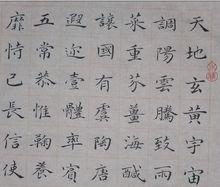 天地玄黃宇宙
調陽雲騰致雨
菜重芥薑海鹹
讓國有虞陶唐
遐邇壹體率賓
五常恭惟鞠養
靡恃己長信使